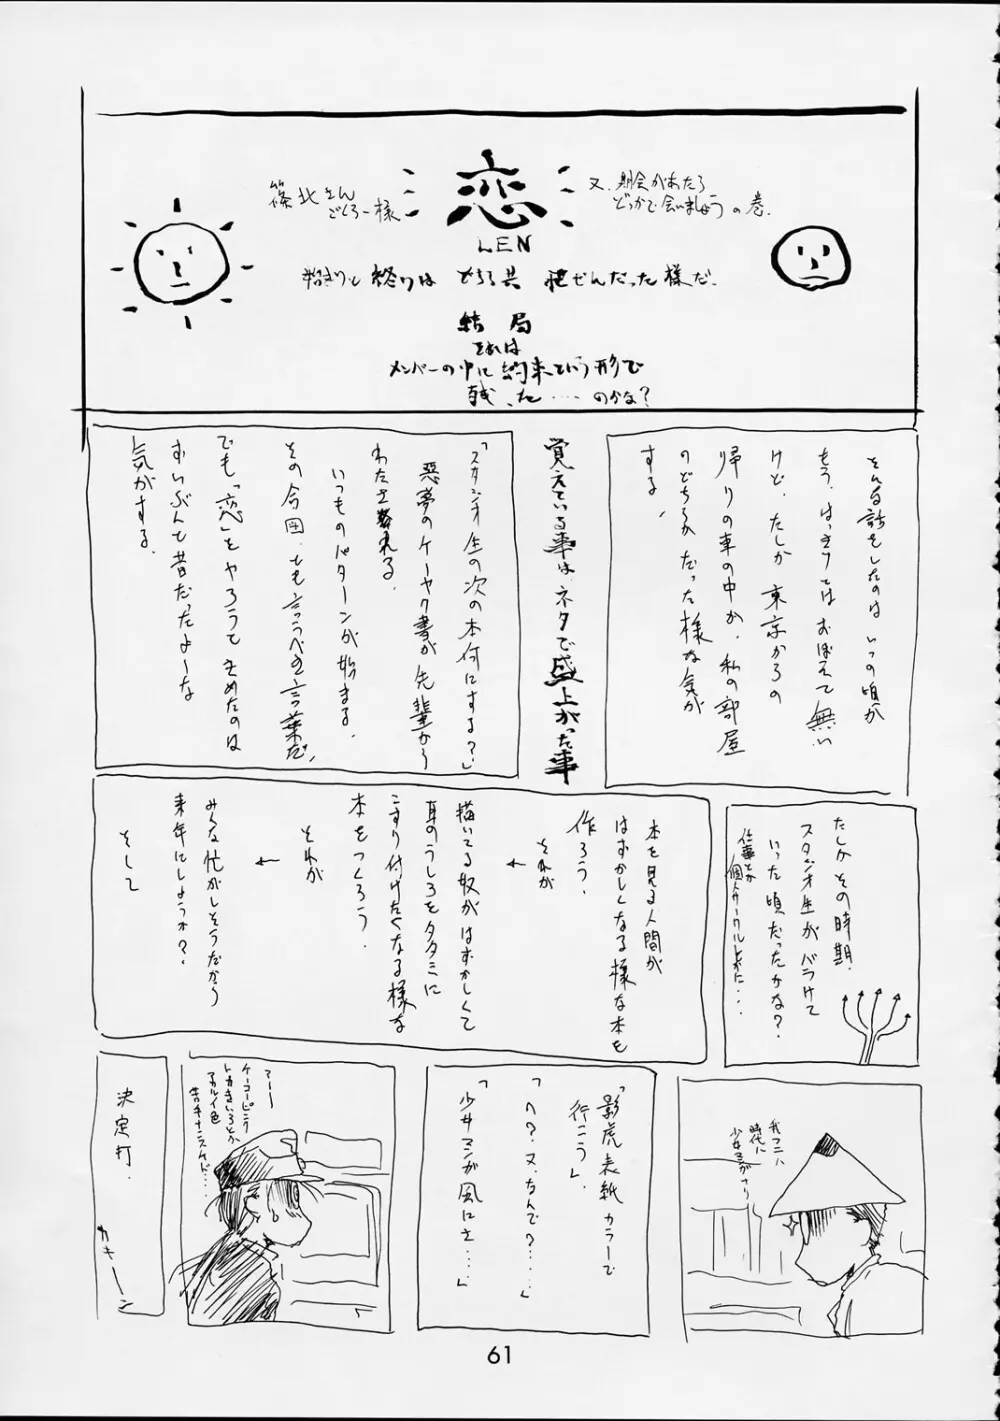 恋
LEN
篠北さん
ごくろー様
又、機会があたら
どっかで会いましょうの巻.
始まりと終りは どちら共 唖ぜんだった様だ.
結局
それは
メンバーの中に約束という形で
残った……のかな?
そんな話をしたのは いつの頃か
もう、はっきりではおぼえて無い
けど、たしか 東京からの
帰りの車の中か、私の部屋
のどちらかだった様な気が
する。
覚えている事は、ネタで盛上がった事
「スタジオ生の次の本何にする?」
悪夢のケーヤク書が先輩から
わたされる.
いつものパターンが始まる.
その合図.とも言うべき言葉だ,
でも「恋」をやろうときめたのは
ずいぶんと昔だったよーな
気がする.
たしか その時期.
スタジオ生が バラけて
いった頃だったかな?
仕事とか
個人サークルとかに…
本を見る人間が
はずかしくなる様な本を
作ろう.
それが
↓
描いてる奴がはずかしくて
耳のうしろをタタミに
こすり付けたくなる様な
本をつくろう.
それが
↓
みんな忙がしそうだから
来年にしようか?
そして
我フニハ
時代ハ
少女マンガナリ
「影虎表紙カラーで
行こう」.
「へ?.又.なんで?……」
「少女マンガ風にさ……」
アーー
ケーコーピンク
トカきいろとか
アカルイ色
苦手ナンスケド……
決定打.
カキーーン
61